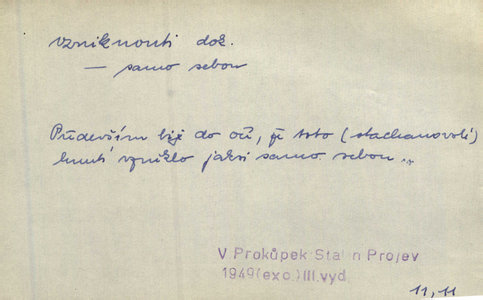 vzniknouti dok.
— samo sebou
Především bije do očí, že toto (stachanovské)
hnutí vzniklo jaksi samo sebou...
V Prokůpek Stal n Projev
1949(exc.)III.vyd
11,11